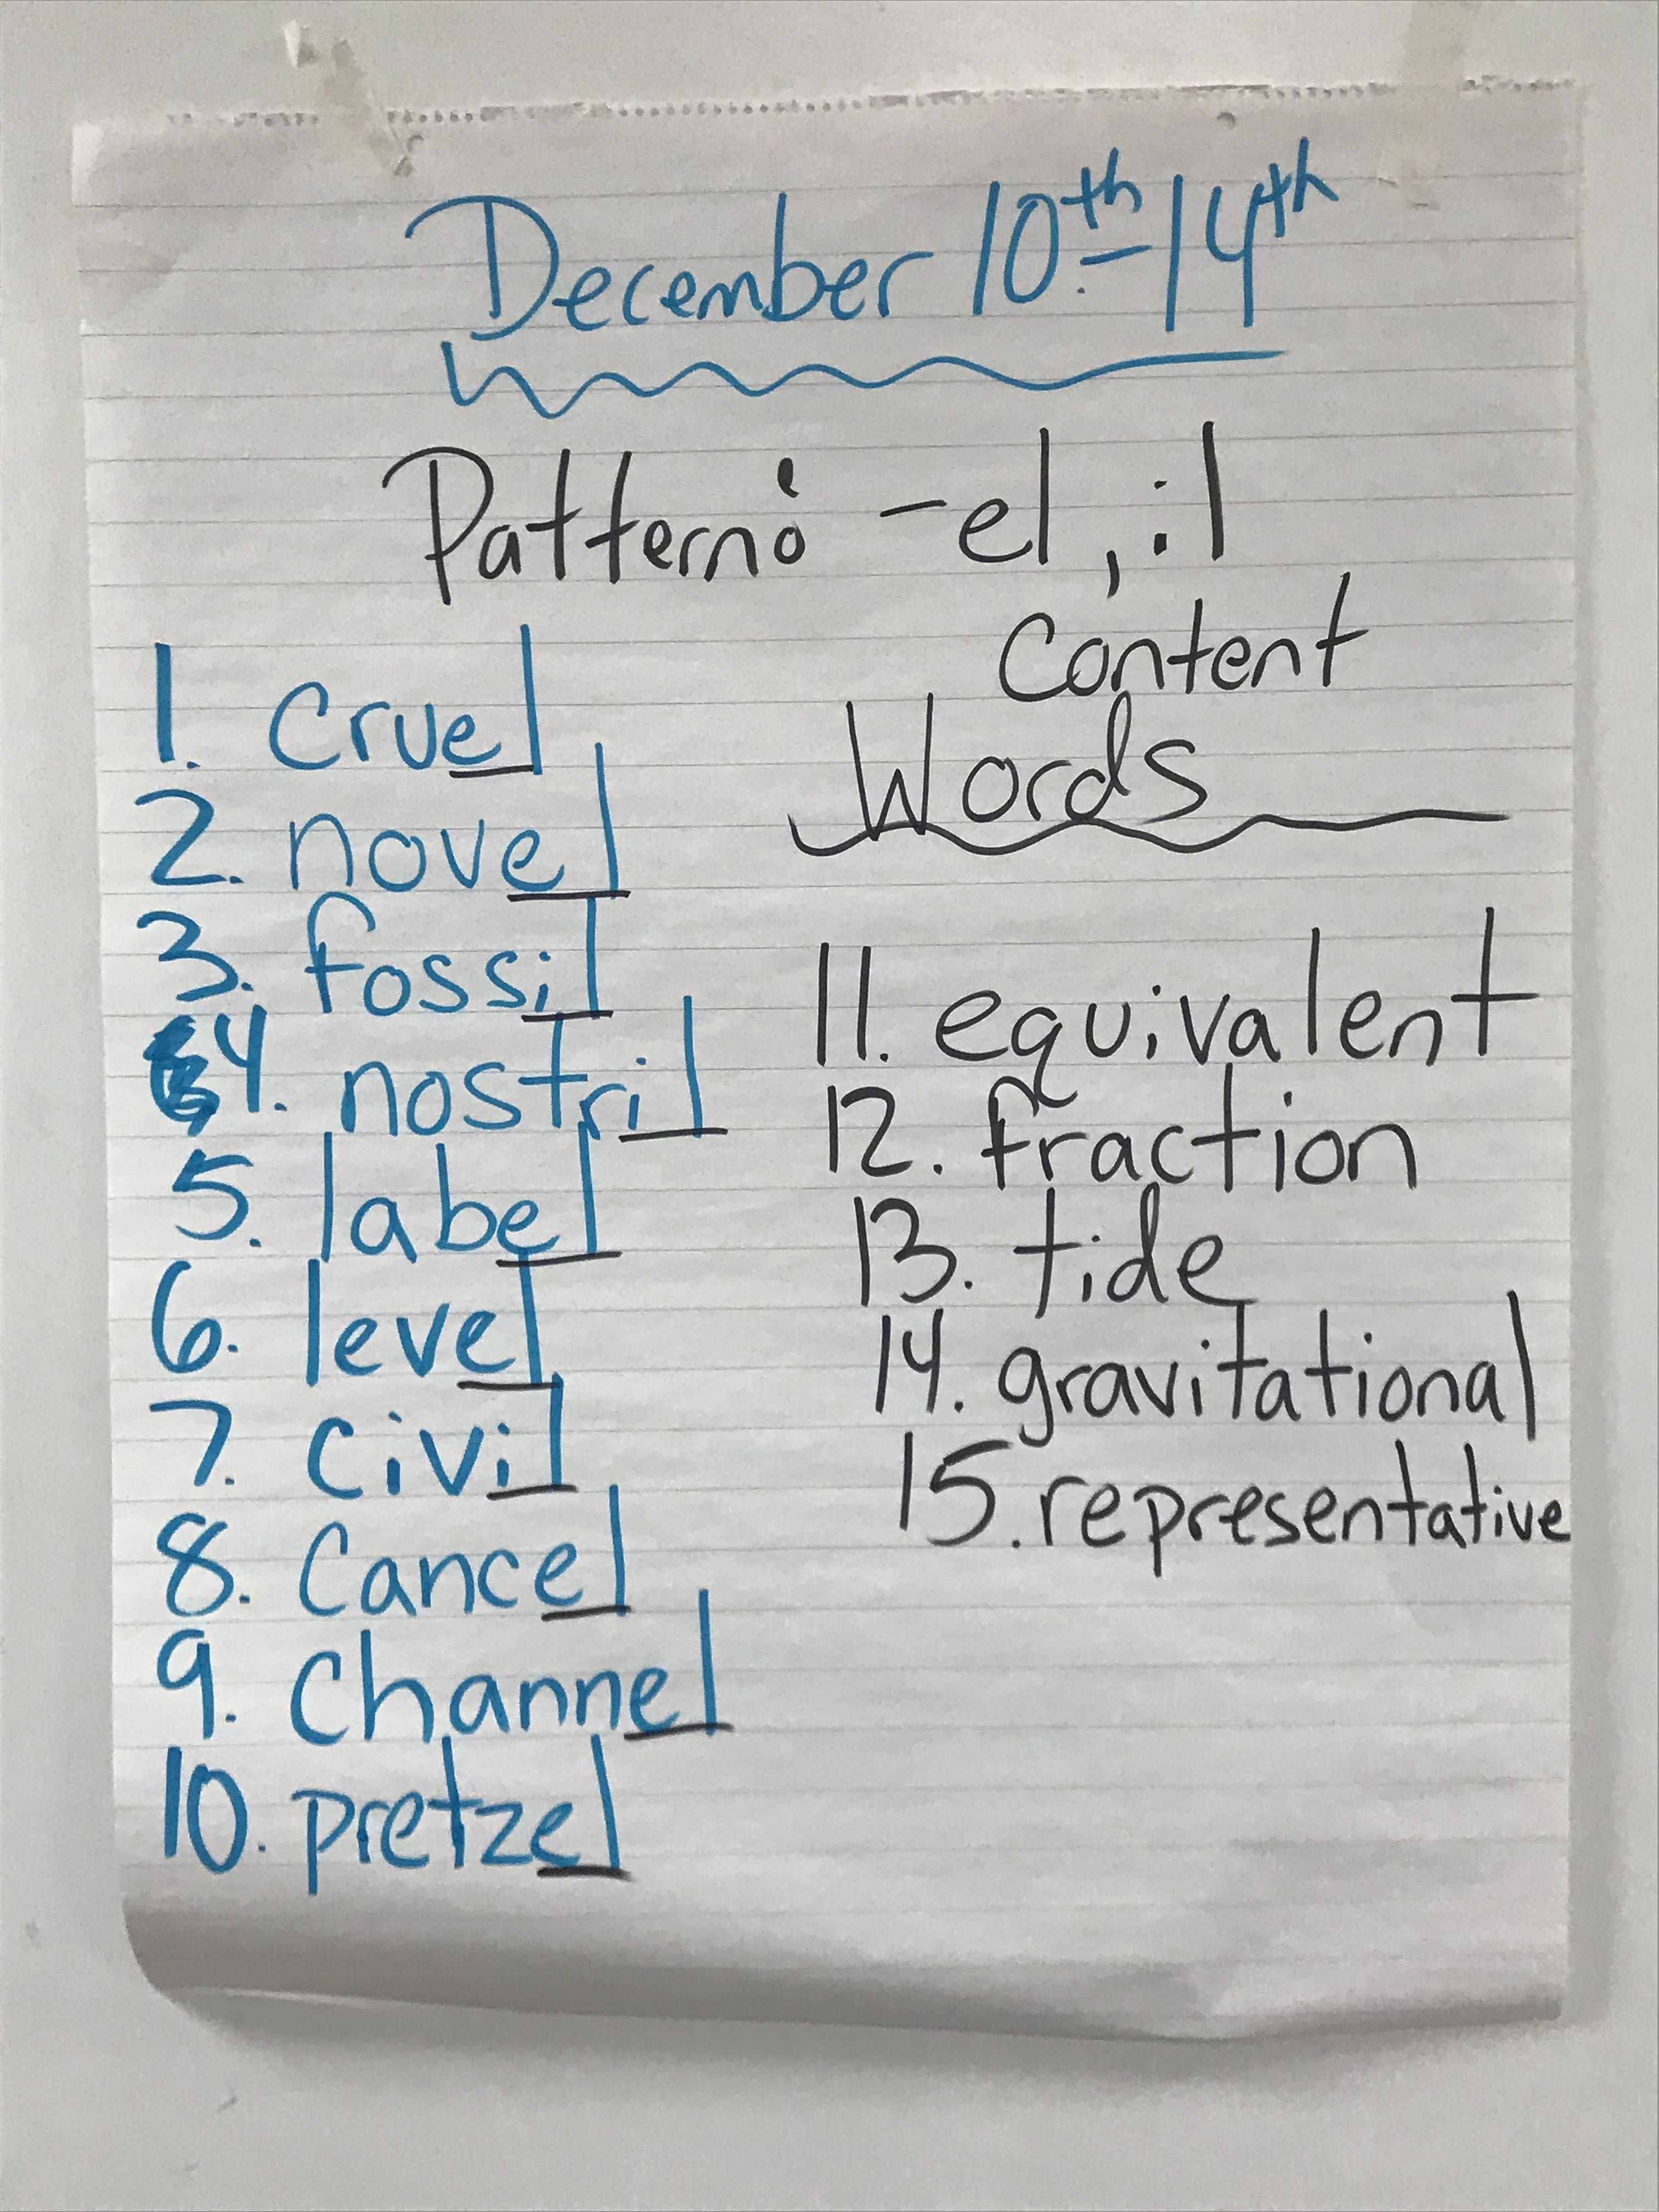 December 10th-14th
Pattern: -el, il
1. cruel
2. novel
3. fossil
4. nostril
5. label
6. level
7. civil
8. Cancel
9. Channel
10. pretzel
Content
Words
11. equivalent
12. fraction
13. tide
14. gravitational
15. representative